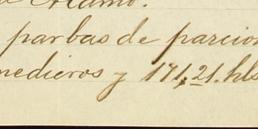 parbas de parcion
medieros y 171,21. hls